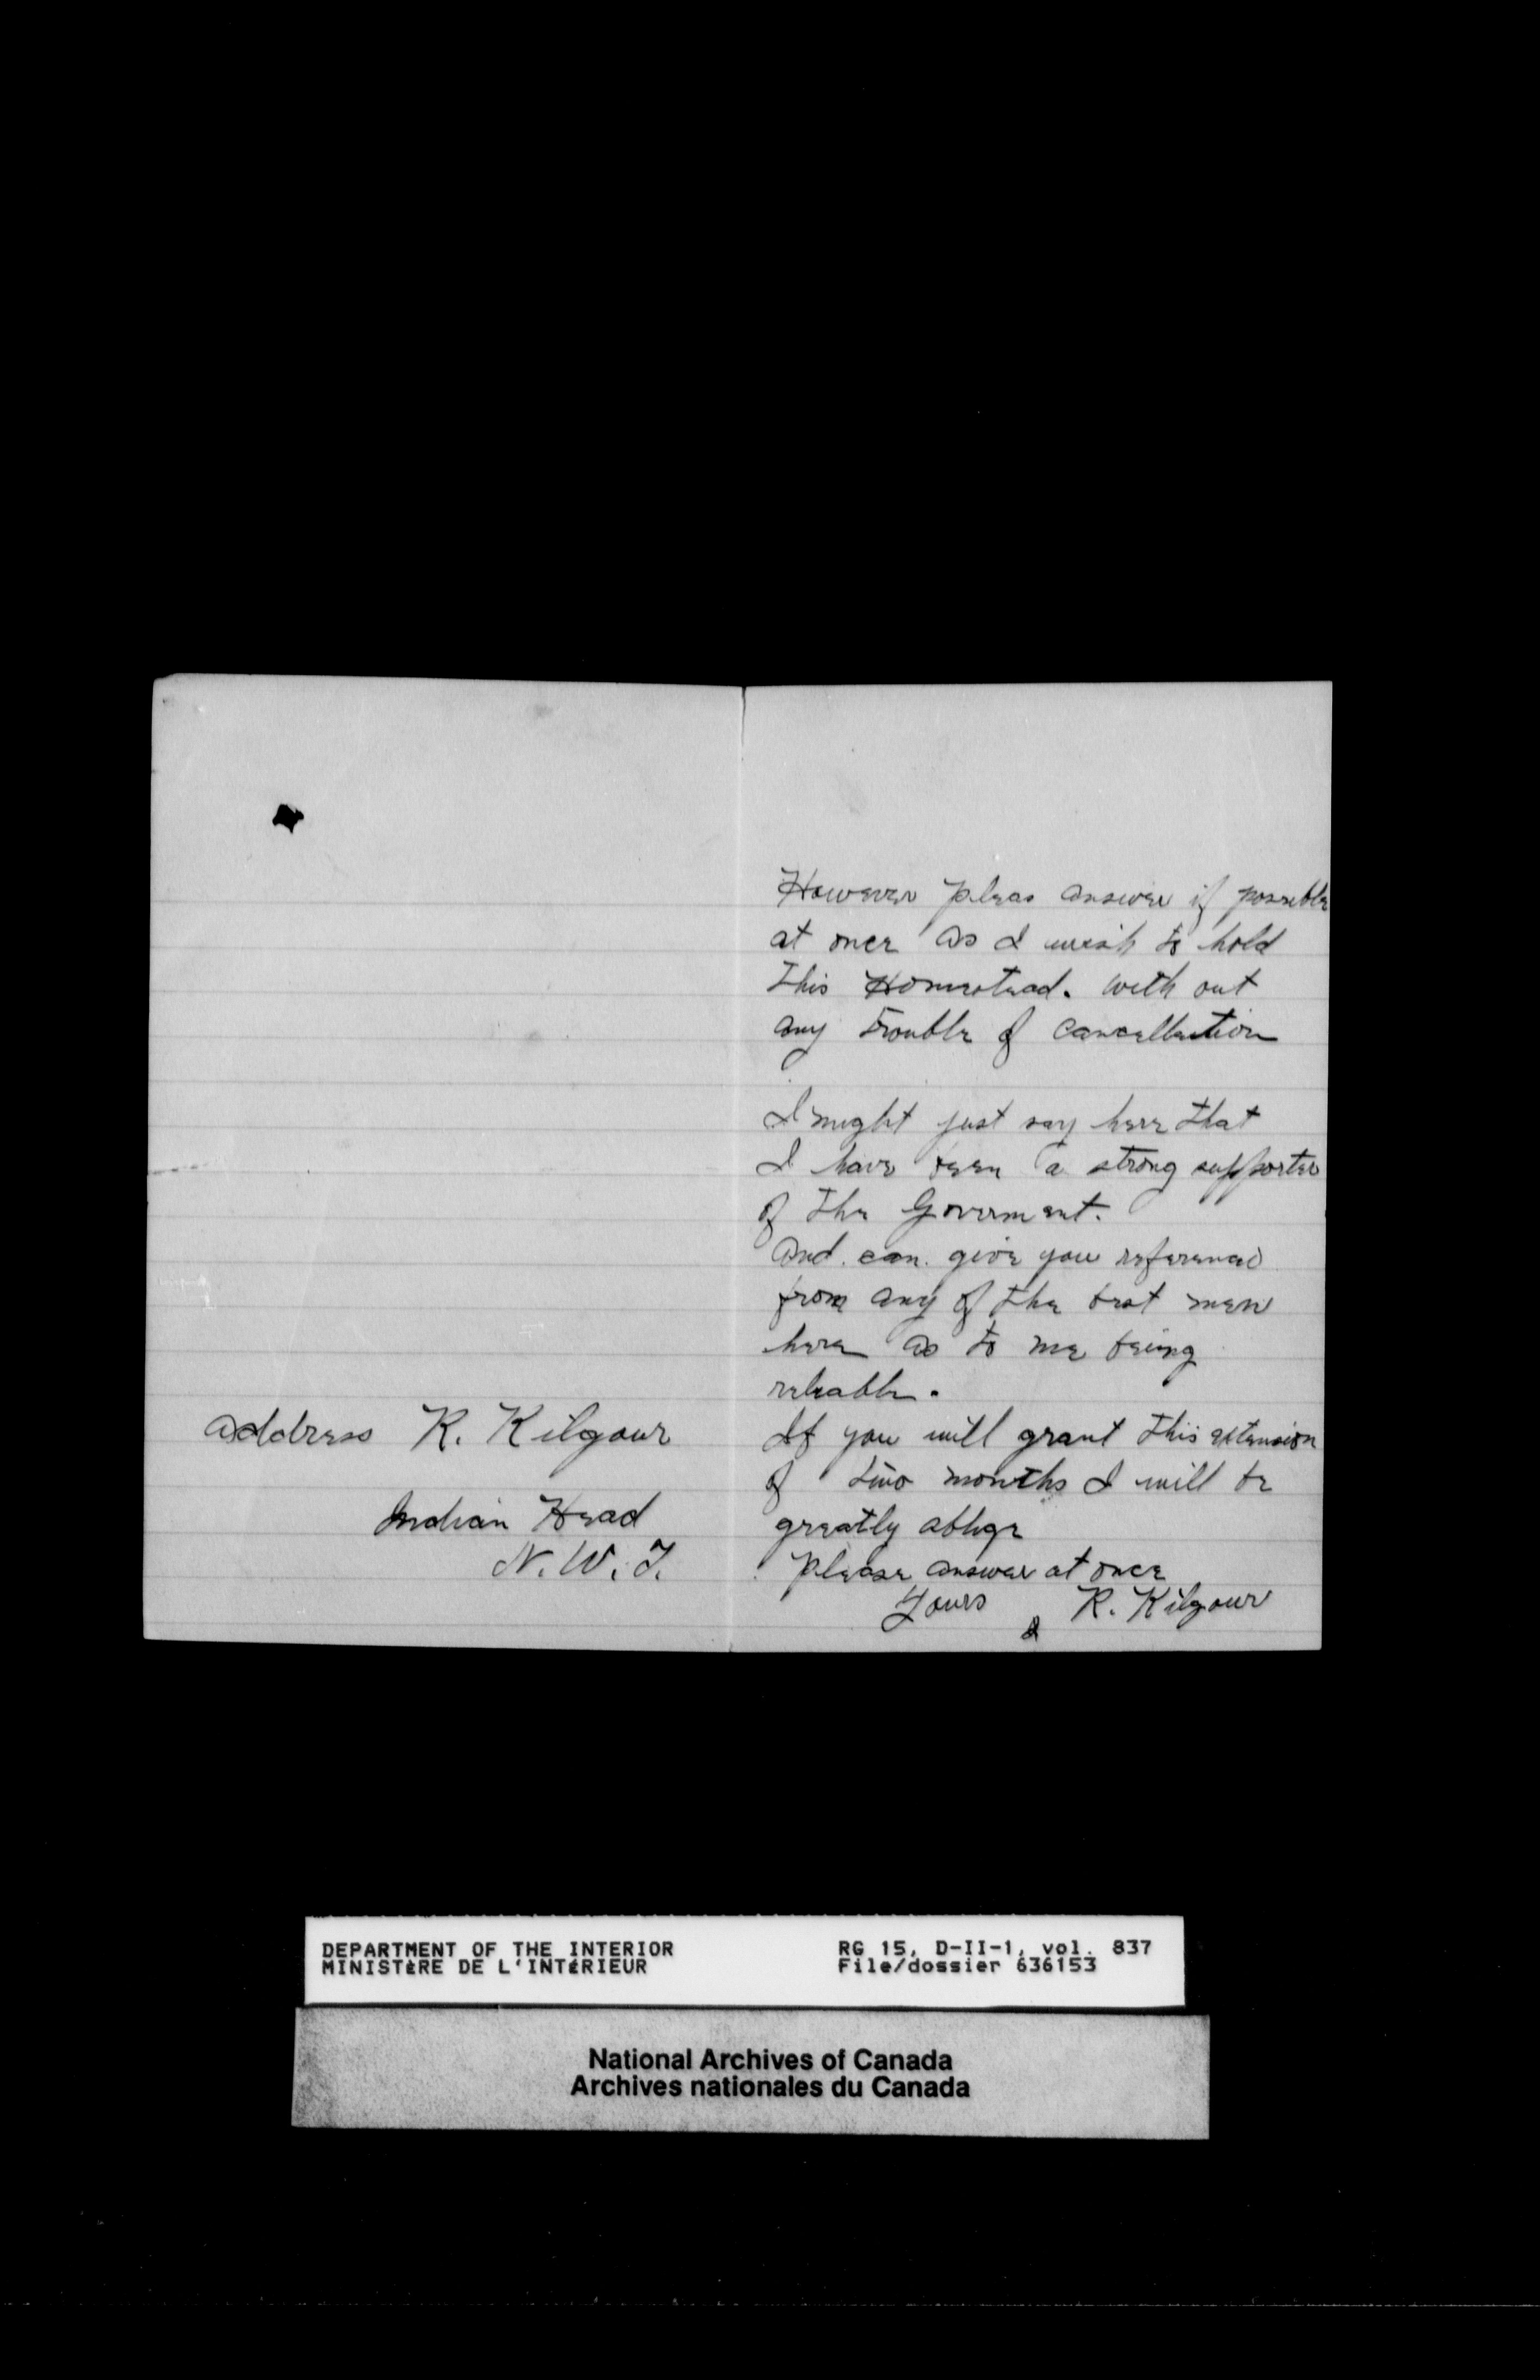 However pleas answer if possible
at once as I wish to hold
this Homestead. with out
any trouble of cancellation
I might just say here that
I have been a strong supporter
of the Goverment.
And can give you referenced
from any of the best men
here as to me being
reliable.
If you will grant this extension
of two months I will be
greatly oblige
Please answer at once
Yours R. Kilgour
address R. Kilgour
Indian Head
N.W.T.
DEPARTMENT OF THE INTERIOR
MINISTÈRE DE L'INTÉRIEUR
RG 15, D-II-1, vol. 837
File/dossier 636153
National Archives of Canada
Archives nationales du Canada